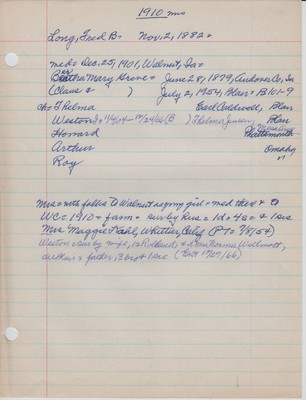 1910 mo
Long, Fred B= Nov. 2, 1882=
md= Dec. 25, 1901, Walnut, Ia=
Bertha Mary Grove= June 28, 1879, Audobon Co, Ia
(Claus = ) July 2, 1954, Blair= B101-9
ch= Thelma Earl Caldwell, Blair
Weston = 1/4/04-10/24/66 (B) Thelma Jensen, Blair
Howard Plattsmouth
Arthur Omaha
Roy "
Mrs= with folks to Walnut as yng girl= med there & to
WC= 1910= farm= surby hus= 1d+4s= & 1 sis
Mrs. Maggie Kahl, Whittier, Calif (PT= 7/8/54)
Weston= surby wife, Richard, & Norma Wollmott,
Arthur= father, 3 bro & 1 sis (Ent 10/27/66)